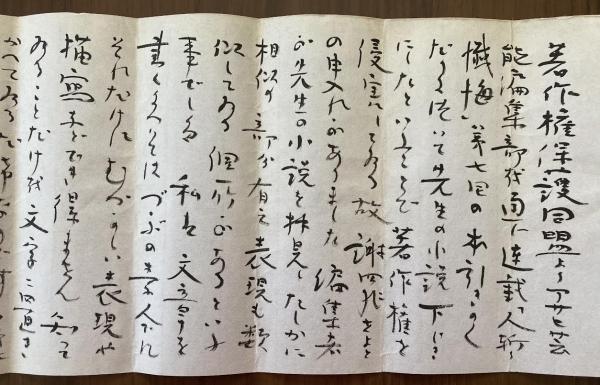 著作権保護同盟よりアサヒ芸
能編集部を通じ連載〝人斬
懺悔〟第七回の 糸引き
について先生の小説 下じき
にしたということで 著作権を
侵害してゐる故 謝罪せよと
の申入れがありました 編集者
が先生の小説を拝見したしかに
相似の部分有之 表現も類
似してゐる個所があるといふ
事でした 私は文章を
書くことはづぶの素人だ
それだけにむづかしい表現や
描寫などでき得ません 知つて
ゐることだけを文字に
かへてゐる